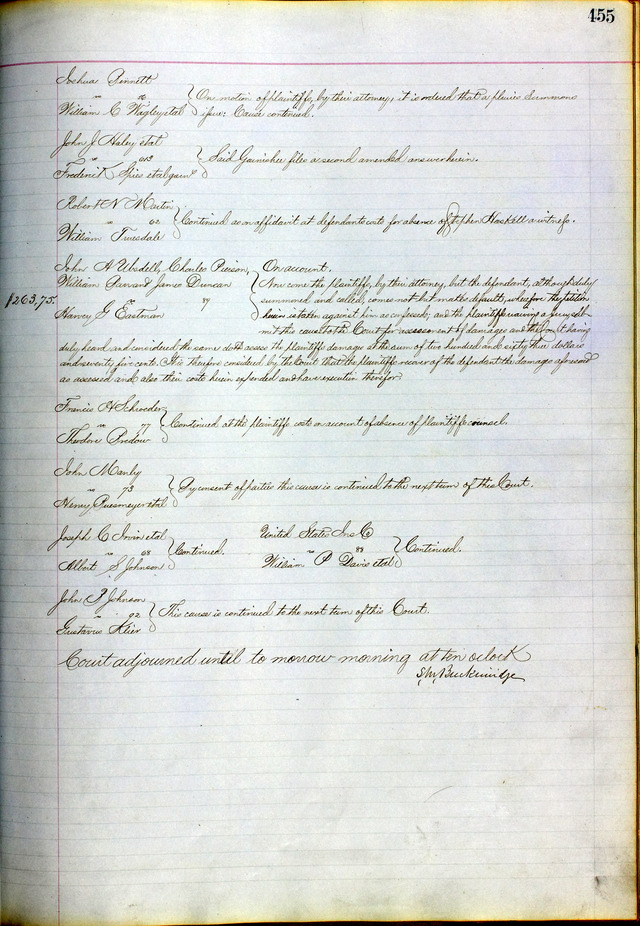 455
Joshua Bennett
vs
William C Wagley etal } One motion of plaintiffs, by their attorney, it is ordered that a pluries Summons
issue. Cause continued.
John J Haley etal
vs 013
Frederick Spies etal garn } Said Garnishee files a second amended answer herein.
Robert N Martin
vs 62
William Truesdale } Continued as on affidavit at defendants costs for absence of Stephen Haskell a witness.
John A Ubsdell, Charles Pierson, On account.
William Farr and James Duncan
vs 89
Harvey G Eastman
$263,75. Now come the plaintiffs, by their attorney, but the defendant, although duly
summoned and called, comes not but makes default, wherefore the petition
herein is taken against him as confessed; and the plaintiffs waiving a jury sub
mit this cause to the Court for assessment of damages and the Court having
duly heard and considered the same doth assess the plaintiffs damage at the sum of two hundred and sixty three dollars
and seventy five cents. It is therefore considered by the Court that the plaintiffs recover of the defendant the damages aforesaid
as assessed and also their costs herein expended and have execution therefor.
Francis H Schroeder
vs 77
Theodore Bredow } Continued at the plaintiffs costs on account of absence of plaintiffs counsel.
John Manly
vs 73
Henry Quesmeyer etal } By consent of parties this cause is continued to the next term of this Court.
Joseph C Irvin etal
vs 68
Albert S Johnson } Continued.
United States Ins Co
vs 88
William P Davis etal } Continued.
John P Johnson
vs 92
Gustavus Klier } This cause is continued to the next term of this Court.
Court adjourned until to morrow morning at ten oclock
S M Breckinridge